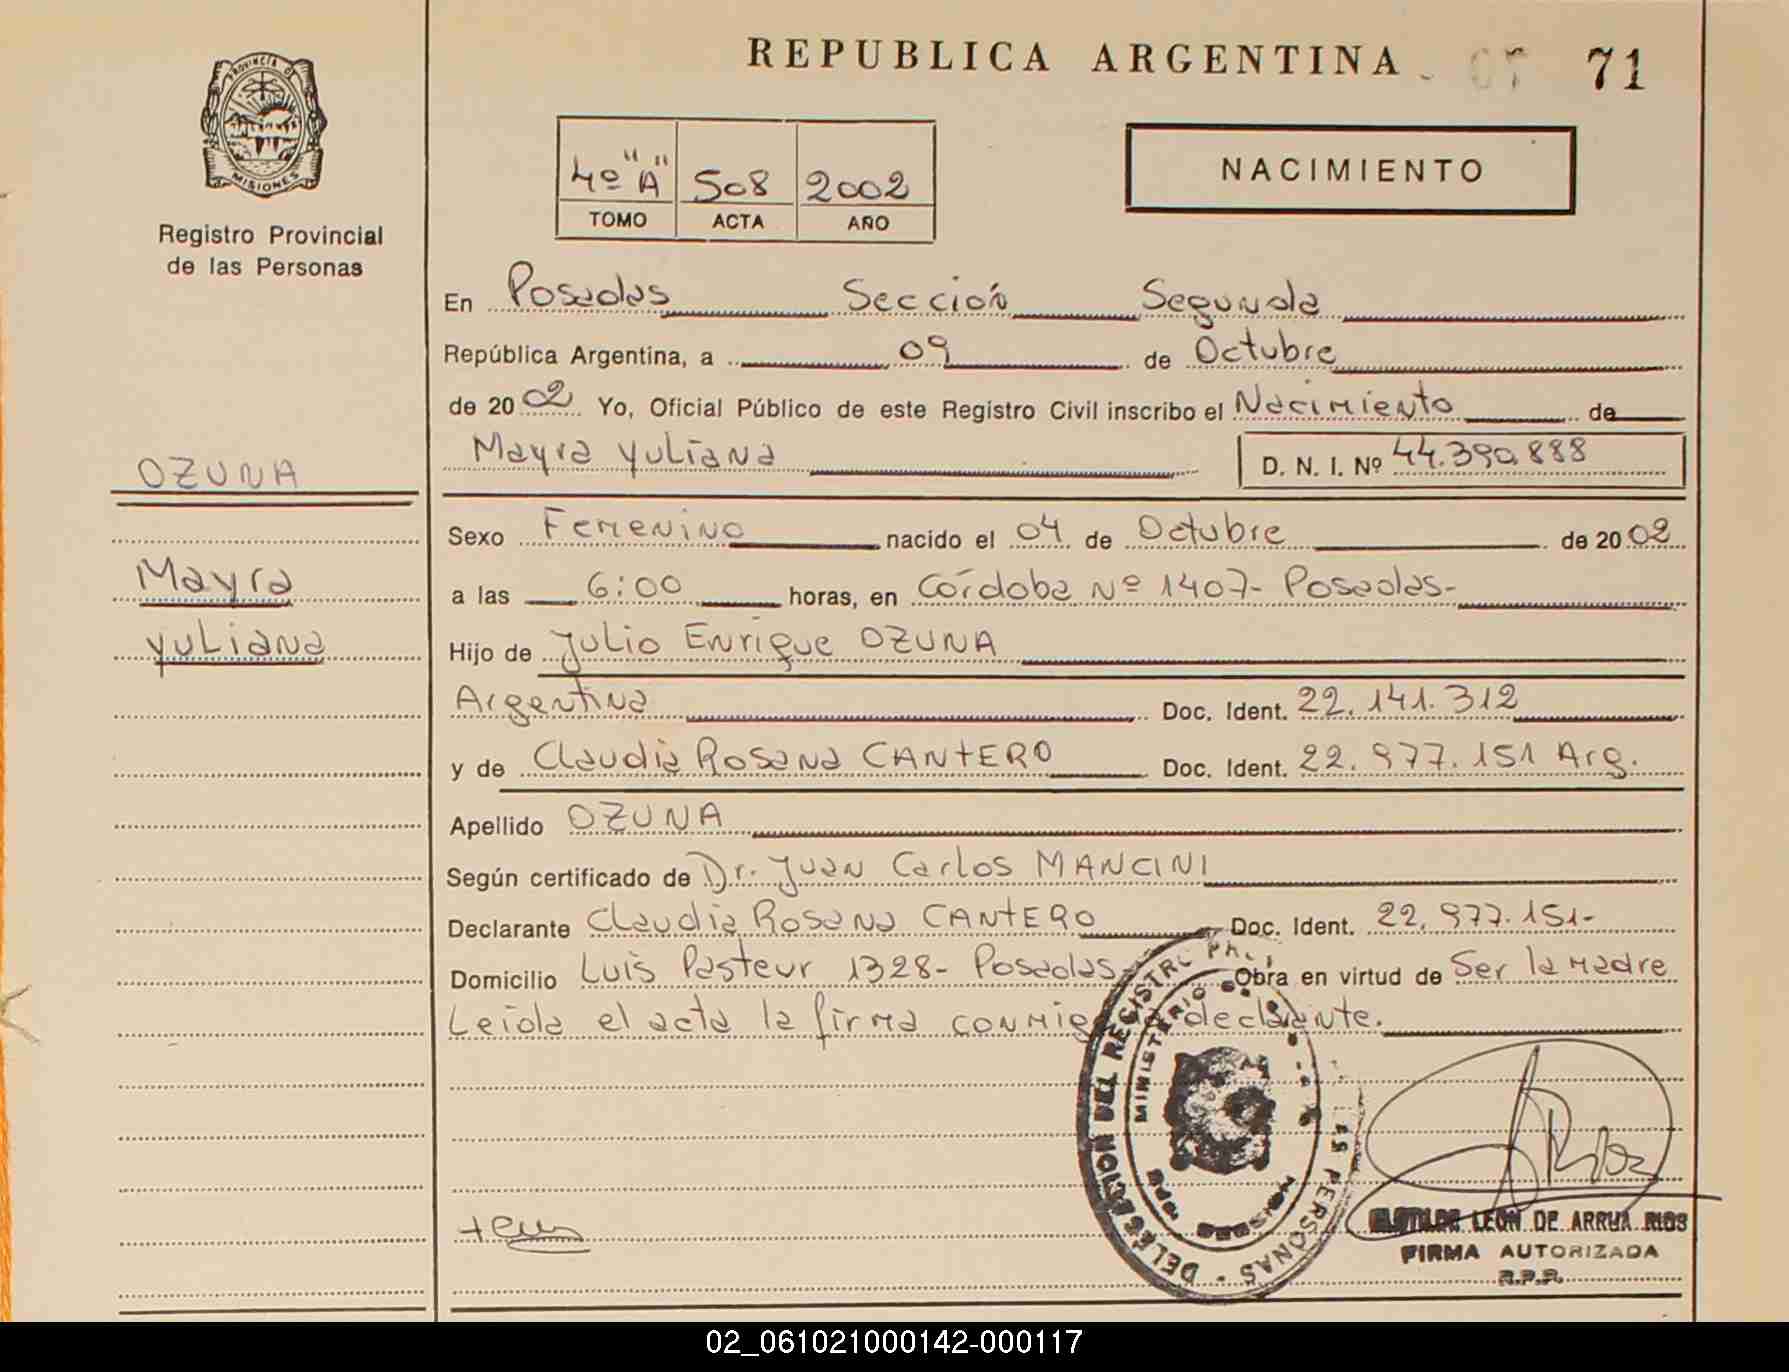 REPUBLICA ARGENTINA
71
PROVINCIA DE
MISIONES
Registro Provincial
de las Personas
4º "A" 508 2002
TOMO ACTA AÑO
NACIMIENTO
En Posadas Sección Segunda
República Argentina, a 09 de Octubre
de 2002 Yo, Oficial Público de este Registro Civil inscribo el Nacimiento de
Mayra Yuliana D. N. I. Nº 44.390.888
OZUNA
Sexo Femenino nacido el 04 de Octubre de 2002
Mayra
a las 6:00 horas, en Córdoba Nº 1407- Posadas-
Yuliana
Hijo de Julio Enrique OZUNA
Argentina Doc. Ident. 22.141.312
y de Claudia Rosana CANTERO Doc. Ident. 22.977.151 Arg.
Apellido OZUNA
Según certificado de Dr. Juan Carlos MANCINI
Declarante Claudia Rosana CANTERO Doc. Ident. 22.977.151-
Domicilio Luis Pasteur 1328- Posadas Obra en virtud de Ser la madre
Leida el acta la firma conmigo la declarante.
DEL REGISTRO LAS PERSONAS
MINISTERIO DE
CLOTILDE LEON DE ARRUA RIOS
FIRMA AUTORIZADA
R.P.P.
02_061021000142-000117